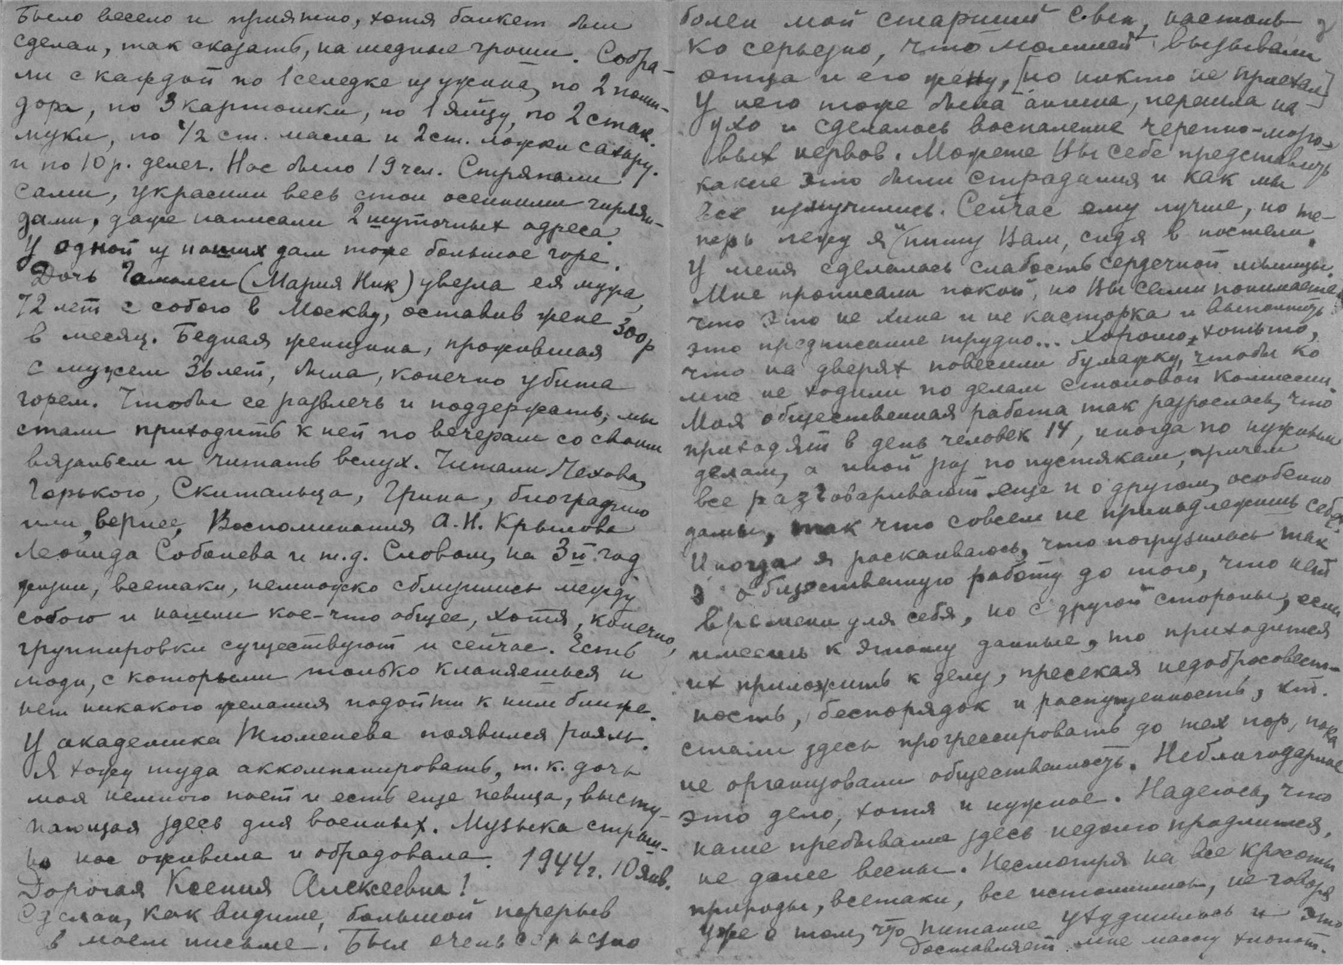 Было весело и приятно, хотя банкет был
сделан, так сказать, на медные гроши. Собра-
ли с каждой по 1 селедке из ужина, по 2 поми-
дора, по 3 картошки, по 1 яйцу, по 2 стак.
муки, по 1/2 ст. масла и 2 ст. ложки сахару.
и по 10 р. денег. Нас было 19 чел. Стряпали
сами, украсили весь стол осенними гирлян-
дами, даже написали 2 шуточных адреса.
У одной из наших дам тоже большое горе.
Дочь (Мария Ник) увезла ея мужа,
72 лет с собою в Москву, оставив жене 300 р
в месяц. Бедная женщина, прожившая
с мужем 36 лет, была, конечно убита
горем. Чтобы ее развлечь и поддержать, мы
стали приходить к ней по вечерам со своим
вязаньем и читать вслух. Читали Чехова,
Горького, Скитальца, Грина, биографию
или, вернее, Воспоминания А.Н. Крылова
Леонида Соболева и т.д. Словом, на 3й год
жизни, всетаки, немножко сблизились между
собою и нашли кое-что общее, хотя, конечно,
группировки существуют и сейчас. Есть
люди, с которыми только кланяешься и
нет никакого желания подойти к ним ближе.
У академика Тюменева появился рояль.
Я хожу туда аккомпанировать, т.к. дочь
моя немного поет и есть еще певица, высту-
пающая здесь для военных. Музыка страш-
но нас оживила и обрадовала. 1944 г. 10 янв.
Дорогая Ксения Алексеевна!
Сделан, как видите, большой перерыв
в моем письме. Был очень серьезно
болен мой старший сын, настоль-
ко серьезно, что молнией вызывали
отца и его жену, [но никто не приехал]
У него тоже была ангина, перешла на
ухо и сделалось воспаление черепно-мозго-
вых нервов. Можете Вы себе представить
какие это были страдания и как мы
все измучились. Сейчас ему лучше, но те-
перь лежу я и пишу Вам, сидя в постели.
У меня сделалась слабость сердечной мышцы,
Мне прописали покой, но Вы сами понимаете,
что это не хина и не касторка и выполнить
это предписание трудно... Хорошо, хоть то,
что на дверях повесили бумажку, чтобы ко
мне не ходили по делам Столовой Комиссии.
Моя общественная работа так разрослась, что
приходят в день человек 14, иногда по нужным
делам, а иной раз по пустякам, причем
все разговаривают еще и о другом, особенно
дамы, так что совсем не принадлежишь себе.
Иногда я раскаиваюсь, что погрузилась так
в общественную работу до того, что нет
времени для себя, но с другой стороны, если
имеешь к этому данные, то приходится
их приложить к делу, пресекая недобросовест-
ность, беспорядок и распущенность, кот.
стали здесь прогрессировать до тех пор, пока
не организовали общественность. Неблагодарное
это дело, хотя и нужное. Надеюсь, что
наше пребывание здесь недолго продлится,
не далее весны. Несмотря на все красоты
природы, всетаки, все истомились, не говоря
уже о том, что питание ухудшилось и это
доставляет мне массу хлопот.